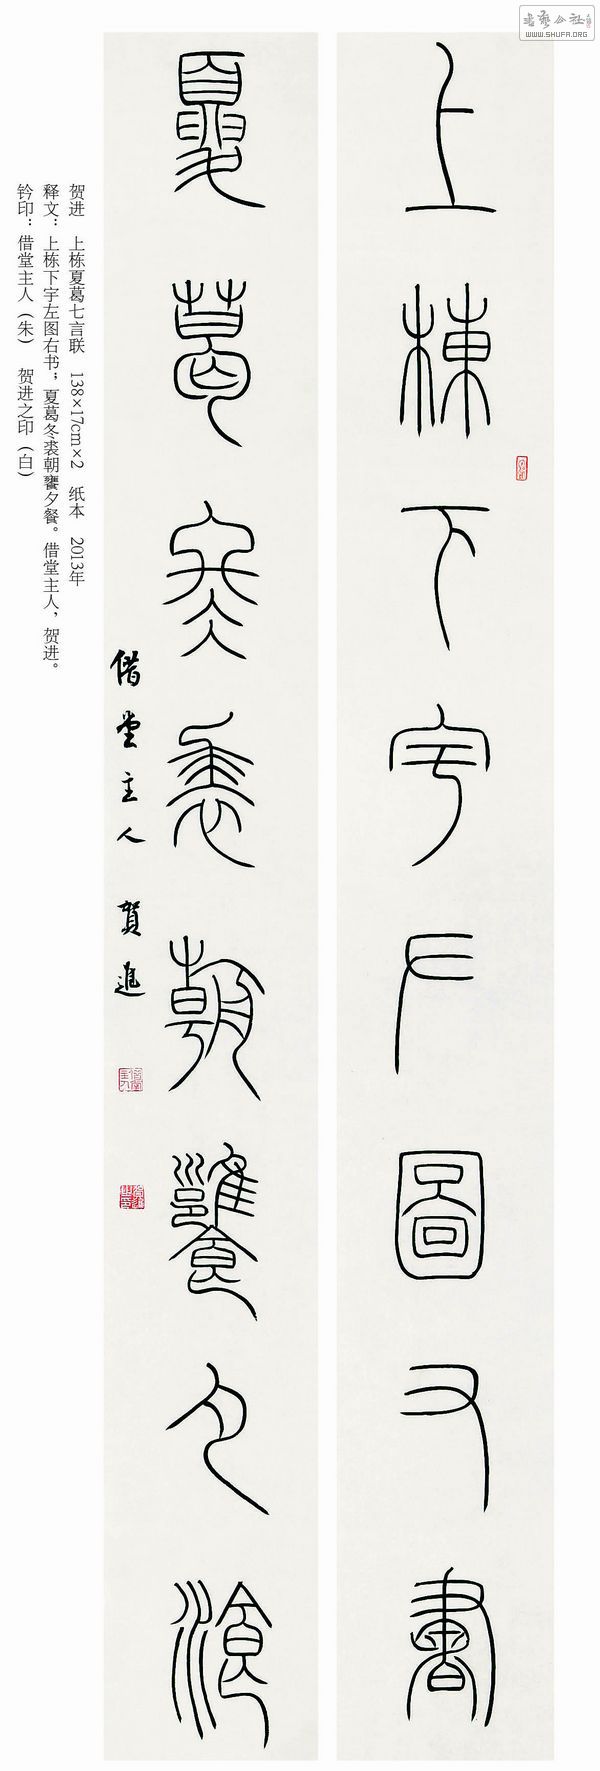 書藝公社
WWW.SHUFA.ORG
上棟下宇𠂇圖又書
夏葛冬裘朝饔夕湌
借堂主人 賀進
贺进 上栋夏葛七言联 138×17cm×2 纸本 2013年
释文：上栋下宇左图右书；夏葛冬裘朝饔夕餐。借堂主人，贺进。
钤印：借堂主人（朱） 贺进之印（白）